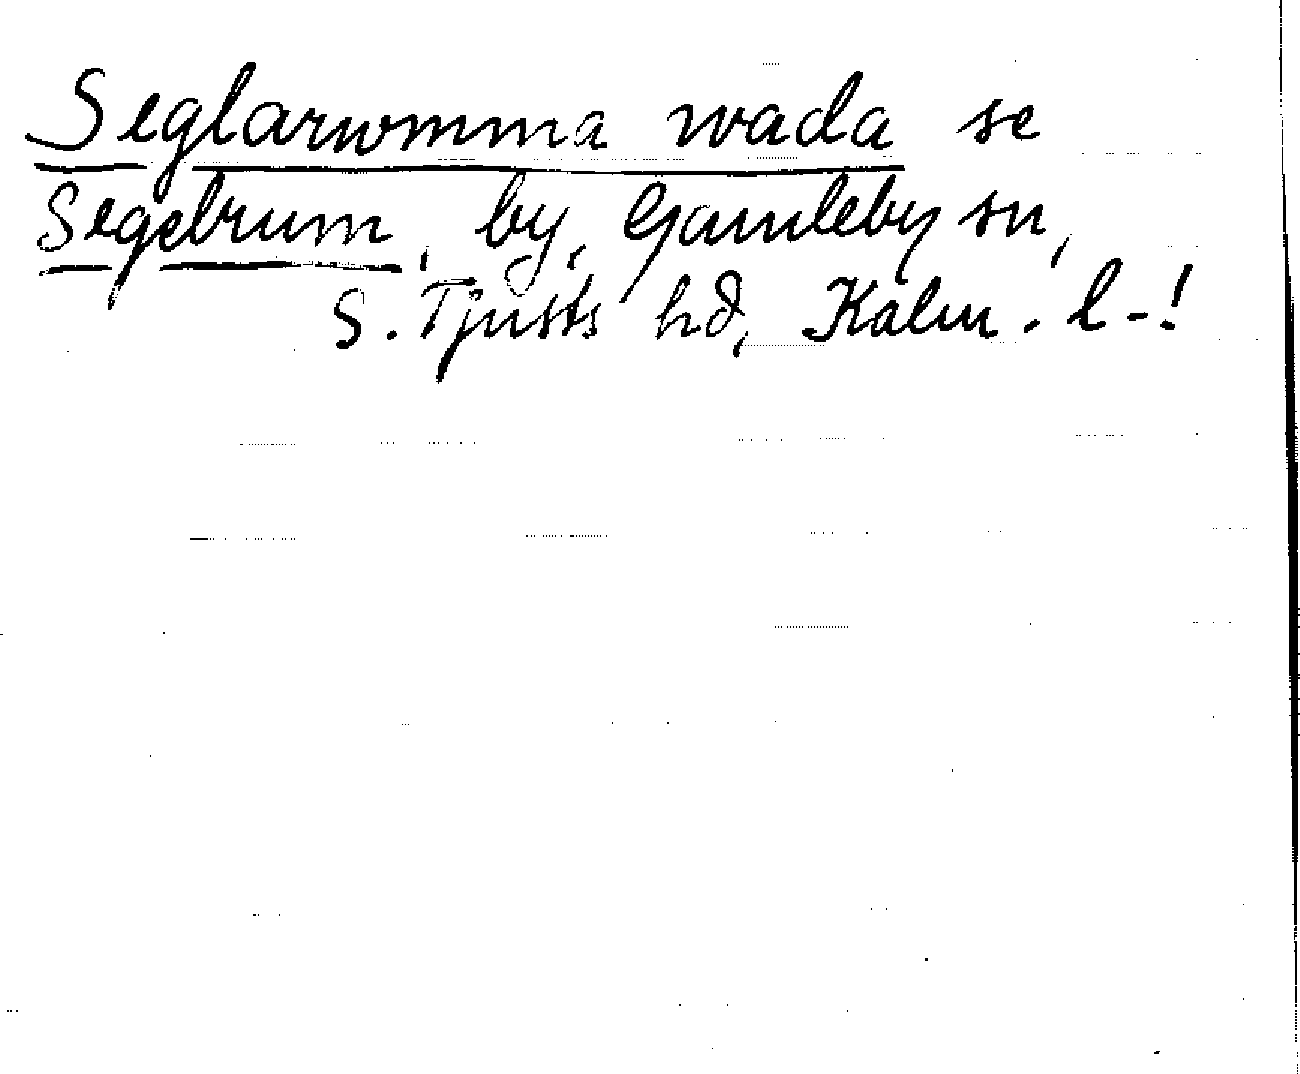 Seglarwmma wada se
Segelrum, by, Gamleby sn,
S. Tjusts hd, Kalm. l-!